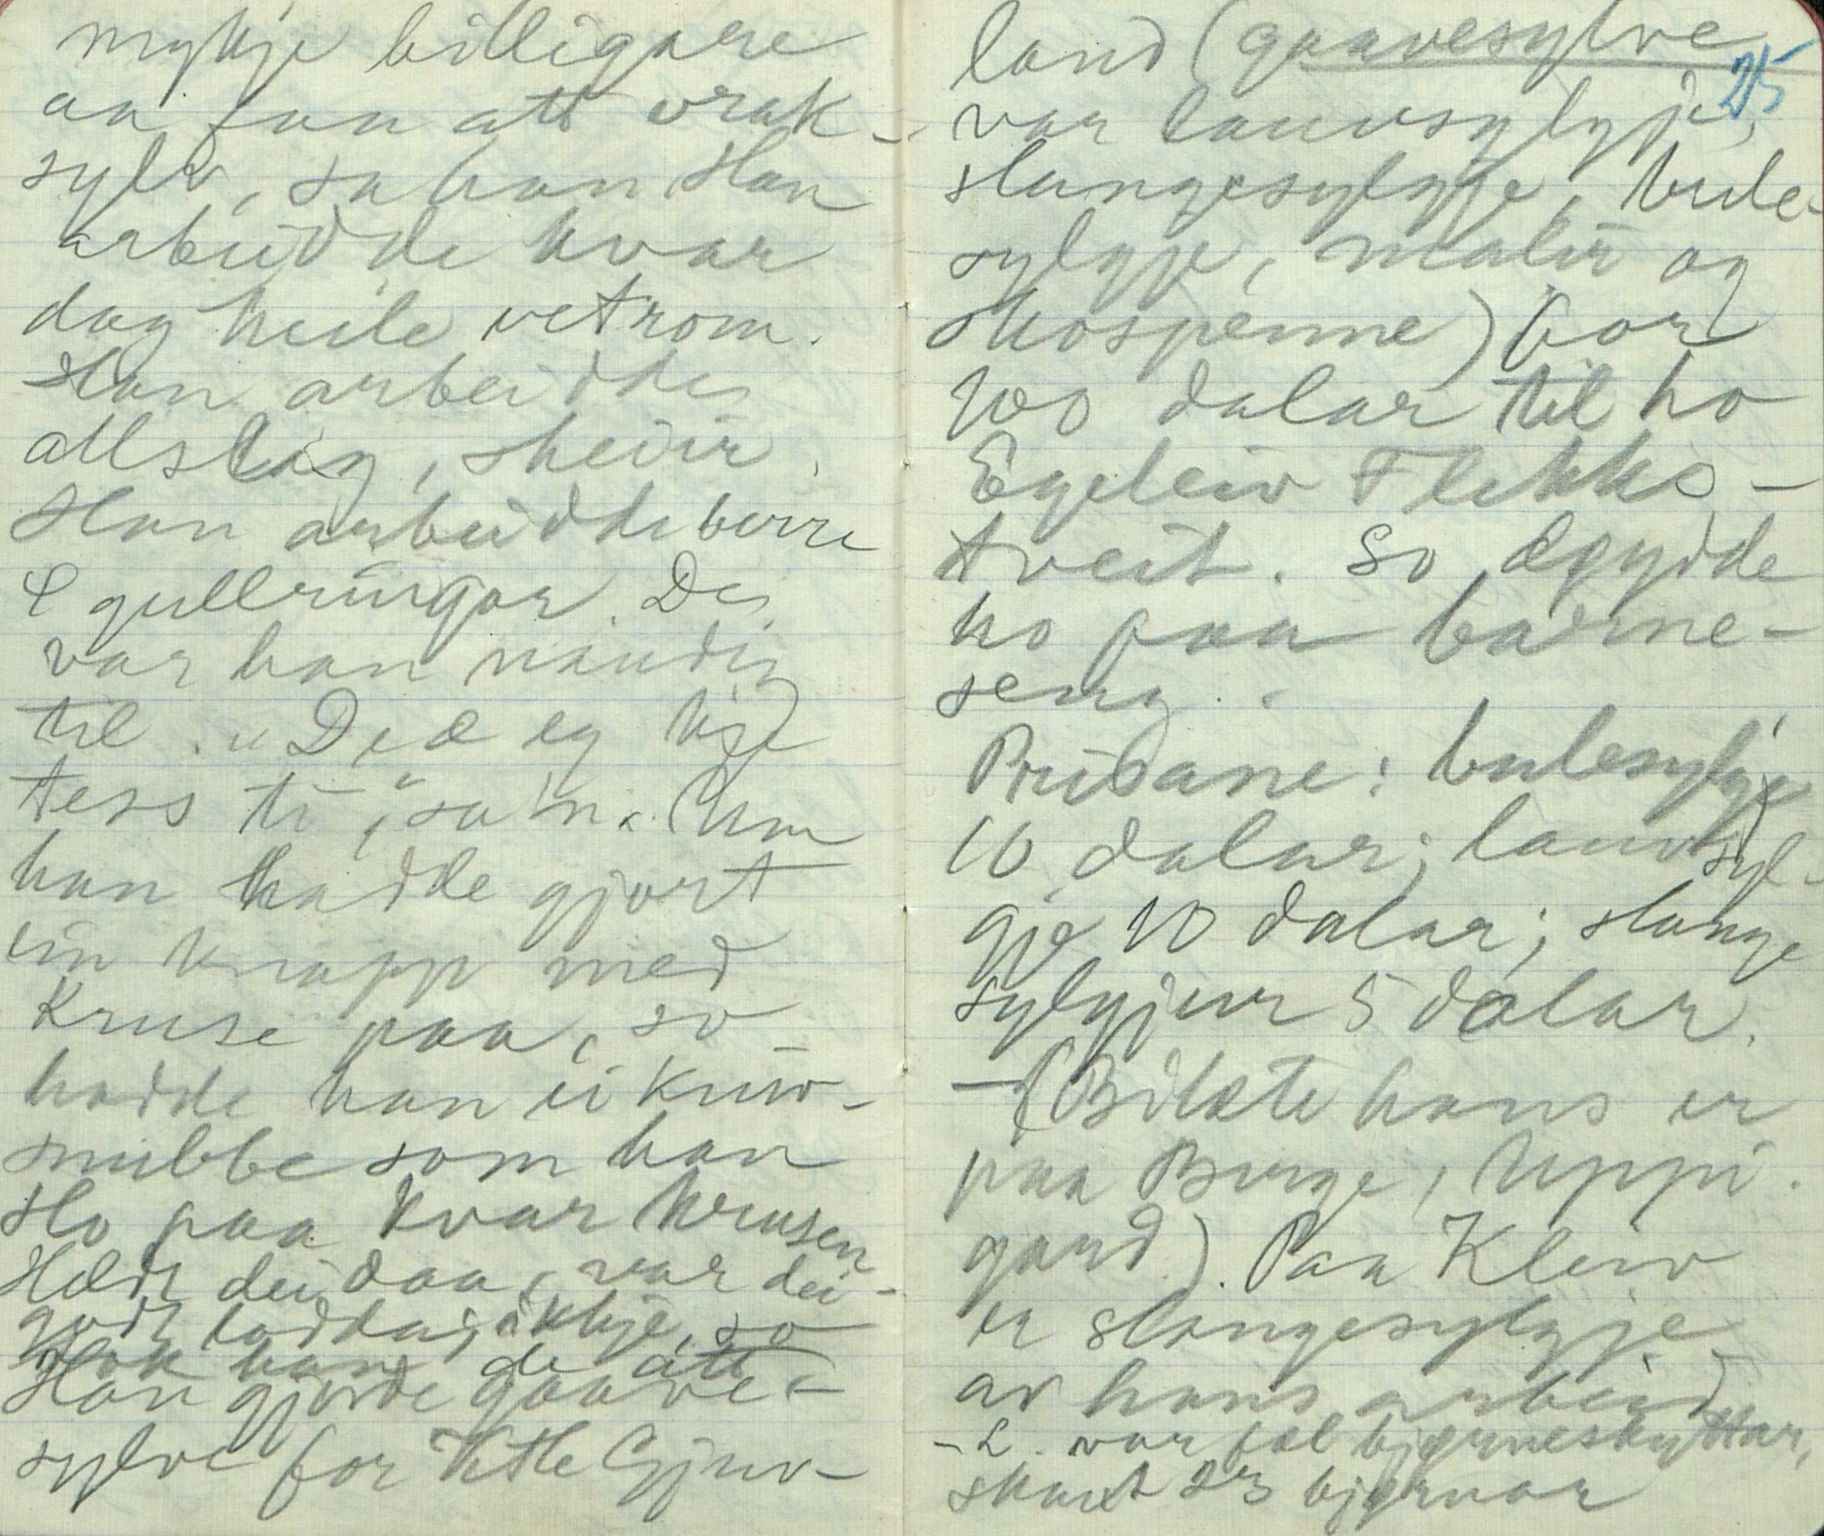 mykje billigare
en fon att vrak-
sylv, sa han Han
arbeidde kvar
dag heile vetrom.
Han arbeidde
allslag, skeiir.
Han arbeidde berre
gullringar. De
var han naudig
til. "De æ eg kje
tess ti", sa'n. Um
han hadde gjort
ein knapp med
Kruse paa, so
hadde han ei kniv-
snibbe som han
slo paa kvar krusen
Heldt dei daa, var dei
godt lodda; ikkje, so
tok han de att
Han gjorde gaave-
sylve for Ketle Gjuv-
25
land (gaavesylve
var lauvsylgje,
slangesylgje, bule-
sylgje, malir og
skospenne) for
100 dalar til ho
Egeleiv Flekks-
tveit. So døydde
ho paa barne-
seng.
Prisane: bulesylgje
10 dalar; lauvsyl-
gje 10 dalar; slange
sylgjur 5 dalar.
- (Bilæte hans er
paa Berge, Uppi-
gard). Paa Kleiv
er slangesylgje
av hans arbeid
- L. var fæl bjørneskyttar,
skaut 23 bjørnar